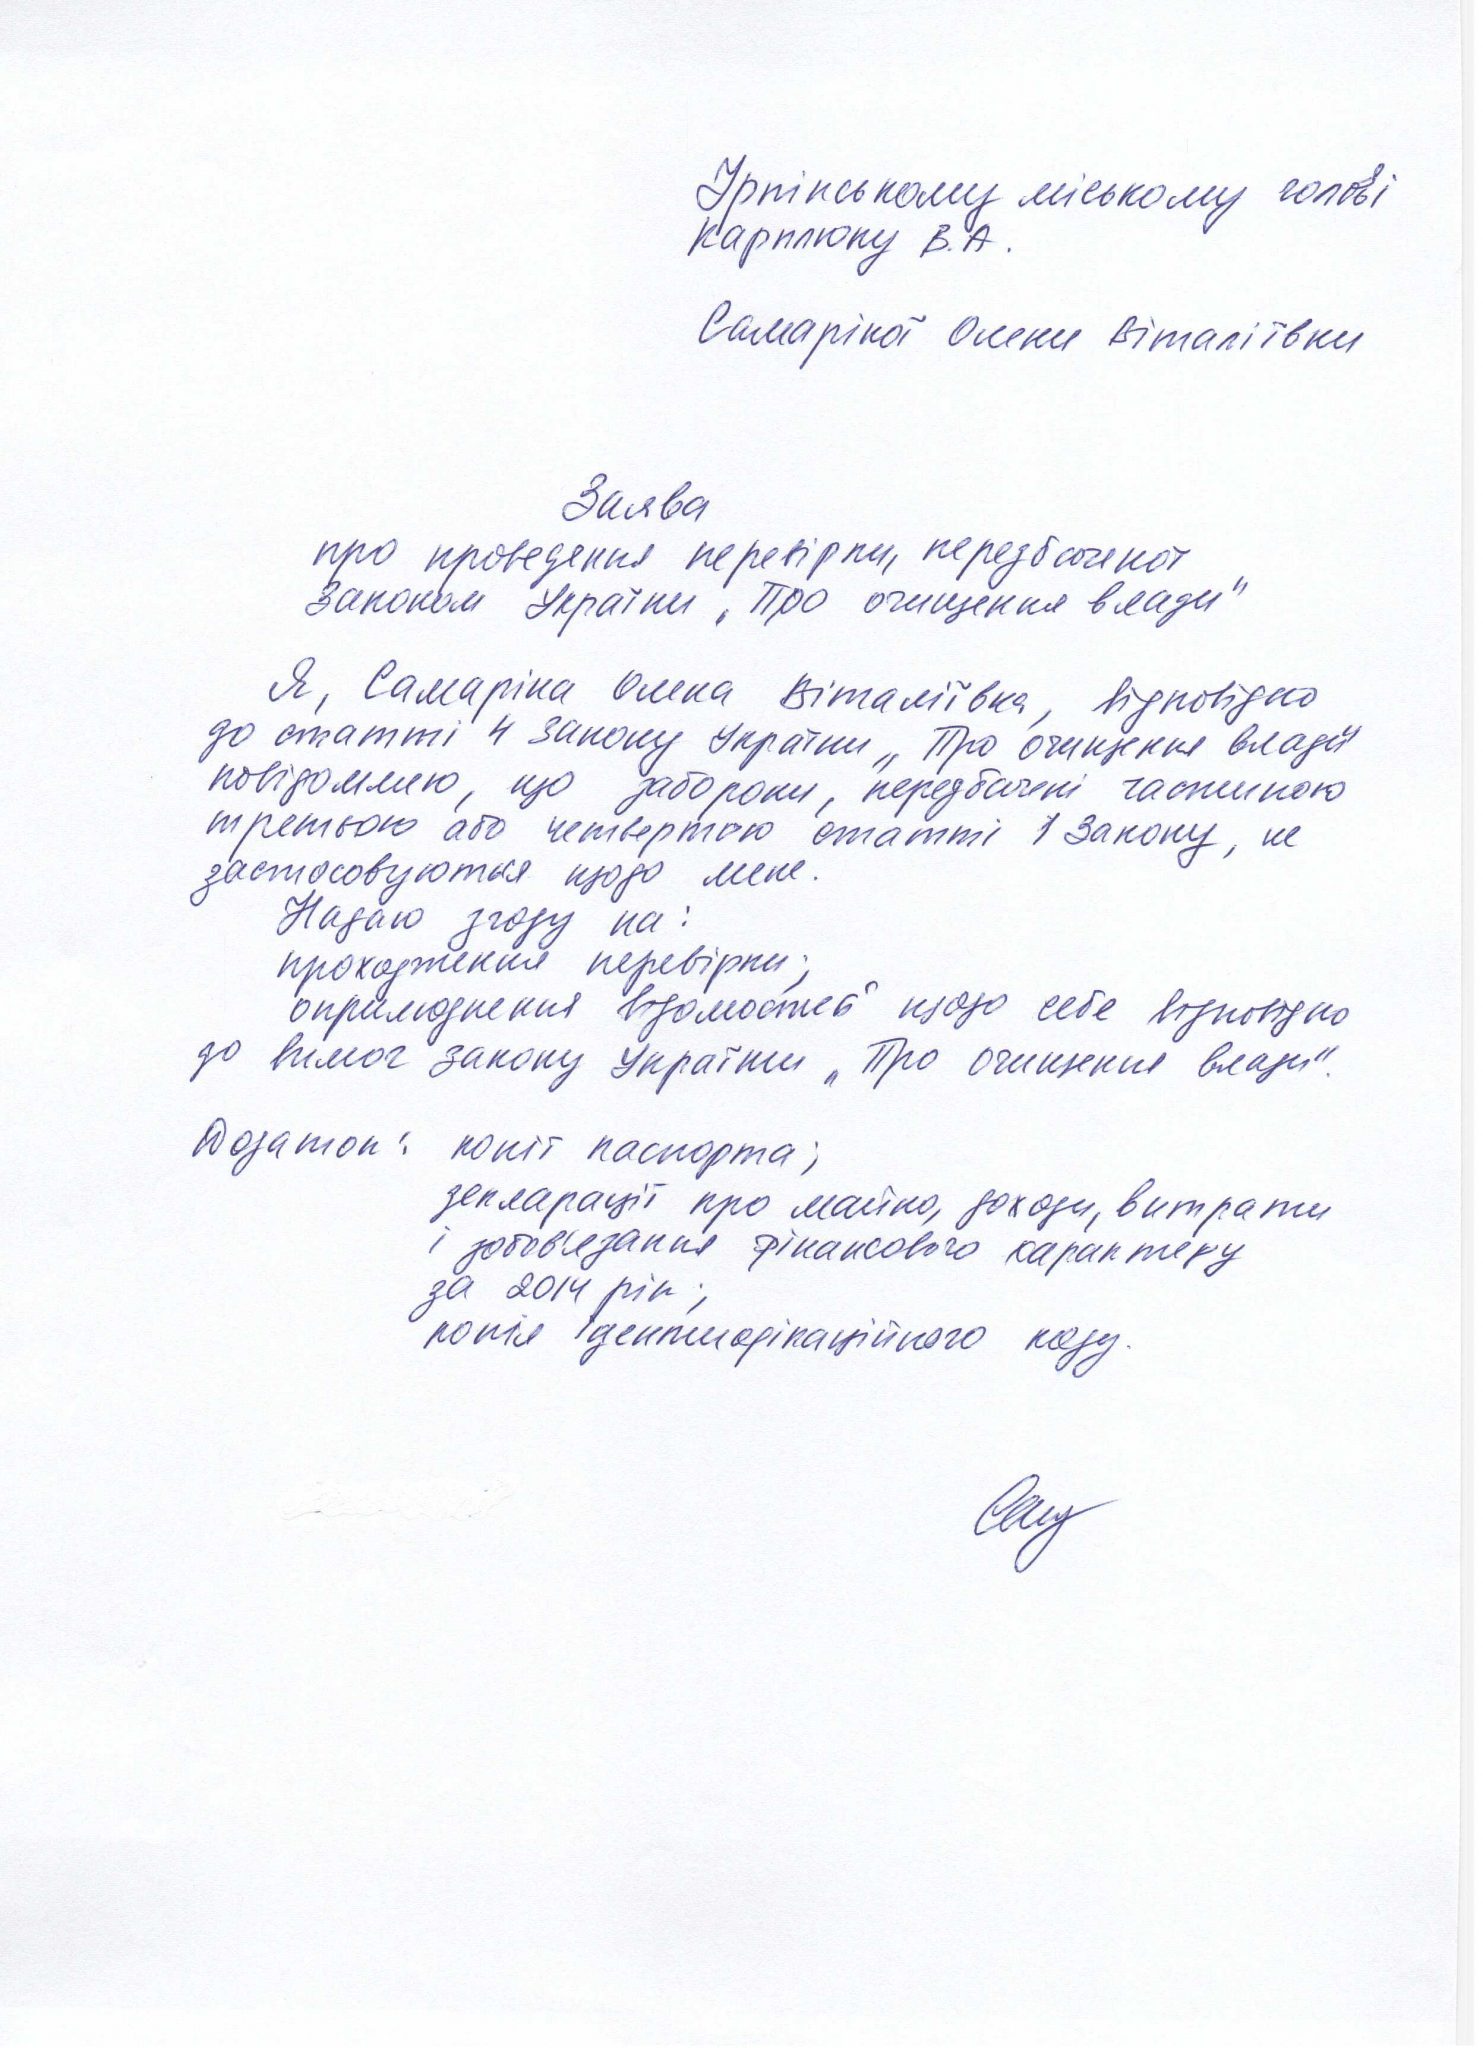 Ірпінському міському голові
Карплюку В.А.
Самаріної Олени Віталіївни
Заява
про проведення перевірки, передбаченої
Законом України „Про очищення влади"
Я, Самаріна Олена Віталіївна, відповідно
до статті 4 Закону України „Про очищення влади"
повідомляю, що заборони, передбачені частиною
третьою або четвертою статті 1 Закону, не
застосовуються щодо мене.
Надаю згоду на:
проходження перевірки;
оприлюднення відомостей щодо себе відповідно
до вимог Закону України „Про очищення влади".
Додаток: копії паспорта;
декларації про майно, доходи, витрати
і зобов'язання фінансового характеру
за 2014 рік;
копія ідентифікаційного коду.